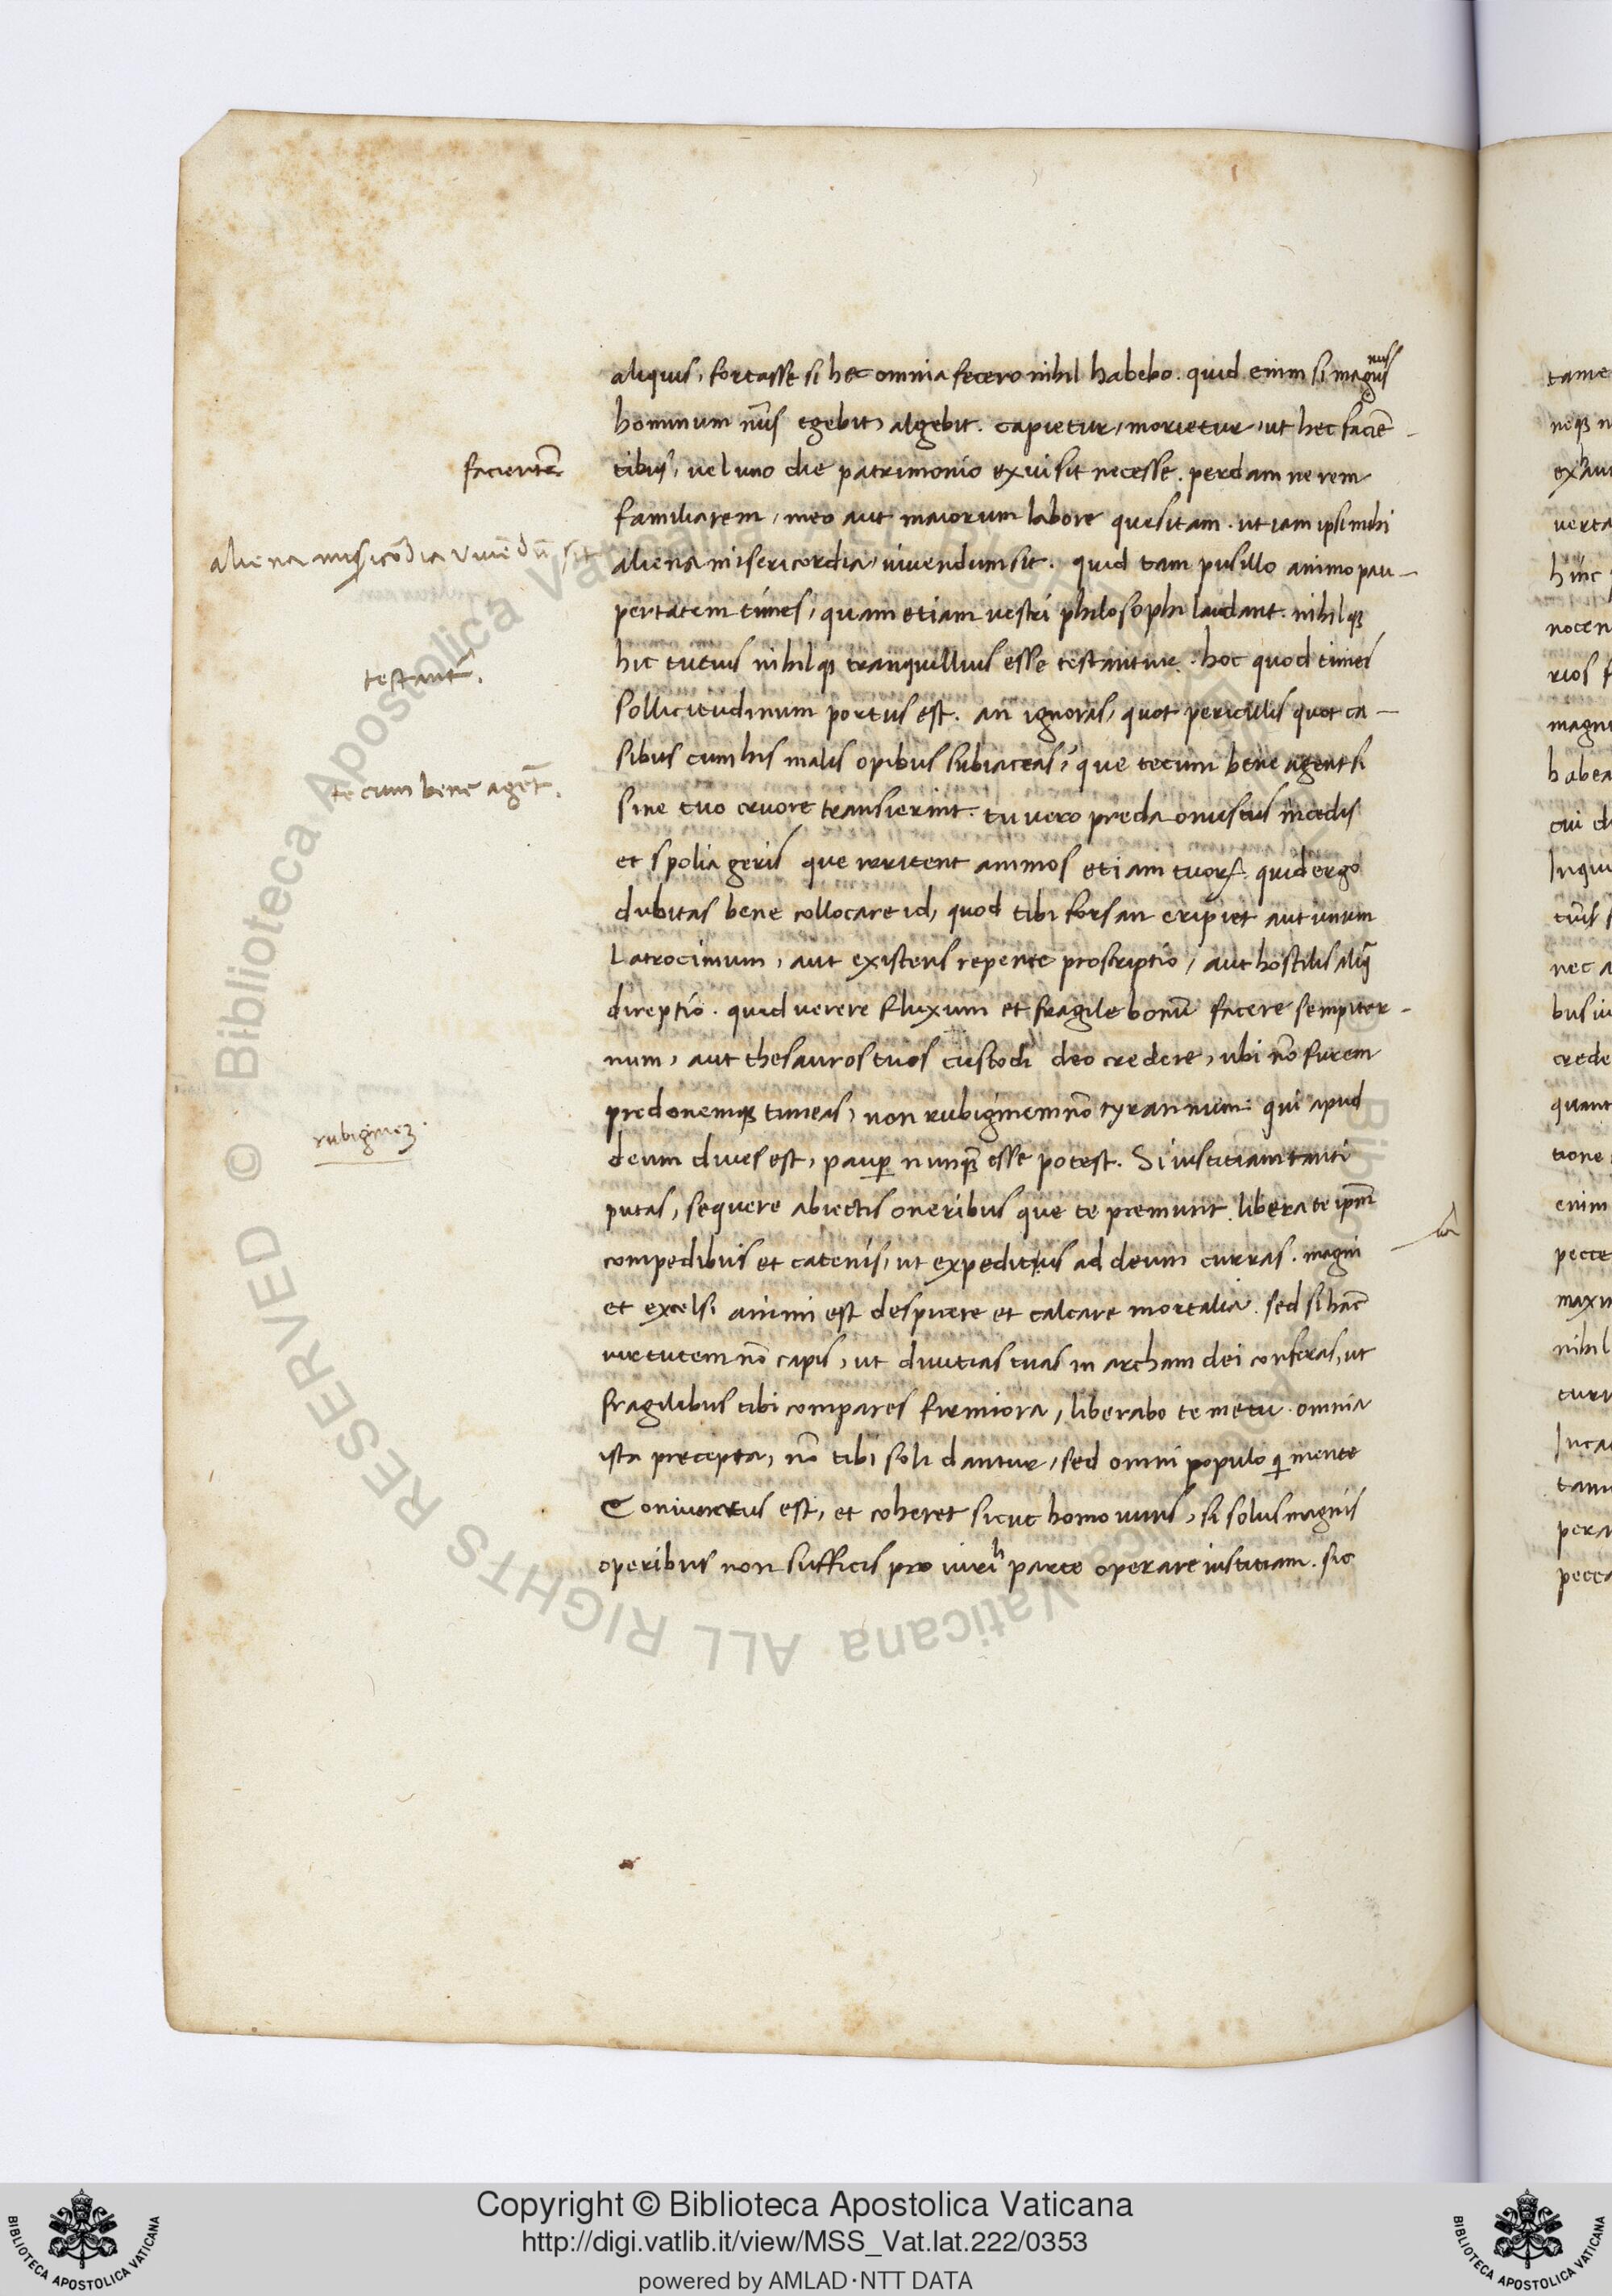 aliquis, fortasse si hec omnia fecero nihil habebo. quid enim si magnus
nus
hominum nũs egebit, algebit. capietur, morietur, ut hec faciẽ-
facientẽ
tibus, vel uno die patrimonio exui sit necesse. perdam ne rem
familiarem, meo aut maiorum labore quesitam. ut iam ipsi mihi
aliena misicordia vivẽdũ sit
aliena misericordia, vivendum sit. quid tam pusillo animo pau-
pertatem times, quam etiam vestri philosophi laudant. nihilqꝫ
hic tutius nihilqꝫ tranquillius esse testantur. hoc quod times
testant̃.
sollicitudinum portus est. an ignoras, quot periculis quot ca-
sibus cum his malis opibus subiaceas, que tecum bene agent si
tecum bene agẽt.
sine tuo cruore transierint. tu vero preda onustus incedis
et spolia geris que irritent animos etiam tuoꝝ. quid ergo
dubitas bene collocare id, quod tibi forsan eripiet aut unum
Latrocinium, aut existens repente proscriptio, aut hostilis aliq̃
direptio. quid verere fluxum et fragile bonũ facere sempiter-
num, aut thesauros tuos custodi deo credere, ubi nõ furem
predonemqꝫ timeas, non rubiginem nõ tyrannum. qui apud
rubigineꝫ.
deum dives est, pauꝑ nunqꝫ esse potest. Si iustitiam tanti
putas, sequere abiectis oneribus que te premunt. libera te ip̃m
compedibus et catenis, ut expeditius ad deum curras. magni
et excelsi animi est despicere et calcare mortalia. sed si hãc
virtutem nõ capis, ut divitias tuas in archam dei conferas, ut
fragilibus tibi compares firmiora, liberabo te metu. omnia
ista precepta, nõ tibi soli dantur, sed omni populo q̃ mente
Coniunctus est, et coheret sicut homo unus, si solus magnis
operibus non sufficis pro viri li parte operare iustitiam. sic
© Biblioteca Apostolica Vaticana ALL RIGHTS RESERVED
Copyright © Biblioteca Apostolica Vaticana
http://digi.vatlib.it/view/MSS_Vat.lat.222/0353
powered by AMLAD·NTT DATA
BIBLIOTECA APOSTOLICA VATICANA
BIBLIOTECA APOSTOLICA VATICANA